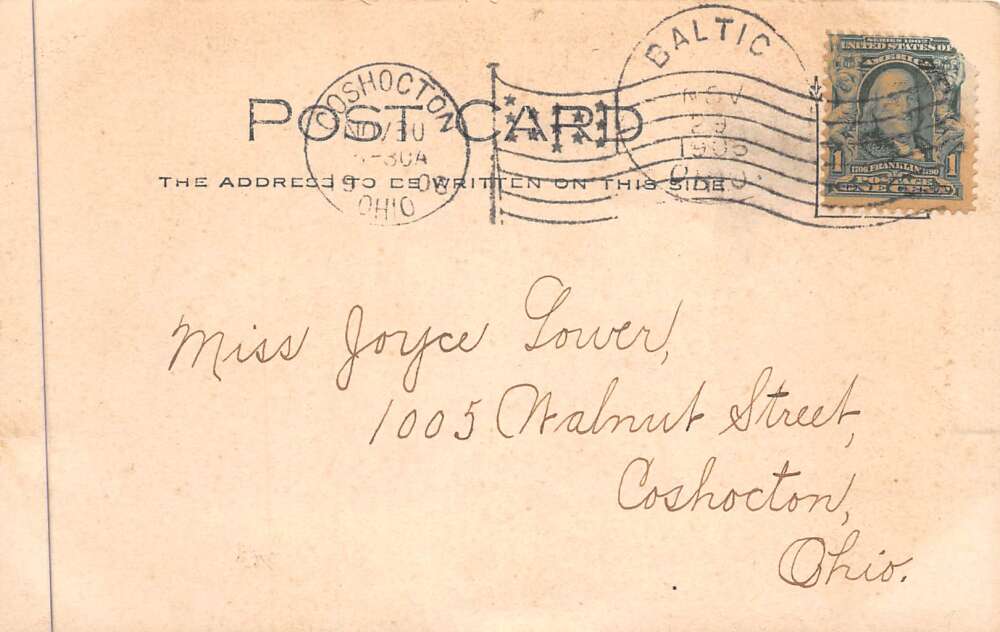 BALTIC
NOV
29
OHIO.
SERIES 1902
UNITED STATES OF
AMERICA
1 1706 FRANKLIN 1790 1
POSTAGE
ONE CENT
COSHOCTON
NOV 30
19 06
OHIO
POST CARD
THE ADDRESS TO BE WRITTEN ON THIS SIDE
Miss Joyce Lower,
1005 Walnut Street,
Coshocton,
Ohio.